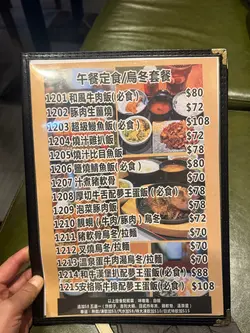 午餐定食/烏冬套餐
1201 和風牛肉飯(必食) $80
1202 豚肉生薑燒 $72
1203 超級鰻魚飯(必食) $108
1204 燒汁雞扒飯 $72
1205 燒汁比目魚飯 $78
1206 鹽燒鯖魚飯(必食) $78
1207 汁煮豬軟骨 $72
1208 厚切牛舌配夢王蛋飯(必食) $88
1209 泡菜豚肉飯 $72
1210 (牛肉/豚肉)烏冬 $72
1211 豬軟骨烏冬/拉麵 $72
1212 叉燒烏冬/拉麵 $70
1213 溫泉蛋牛肉湯烏冬/拉麵 $72
1214 和牛漢堡扒配夢王蛋飯(必食) $88
1215 安格斯牛排配夢王蛋飯(必食) $108